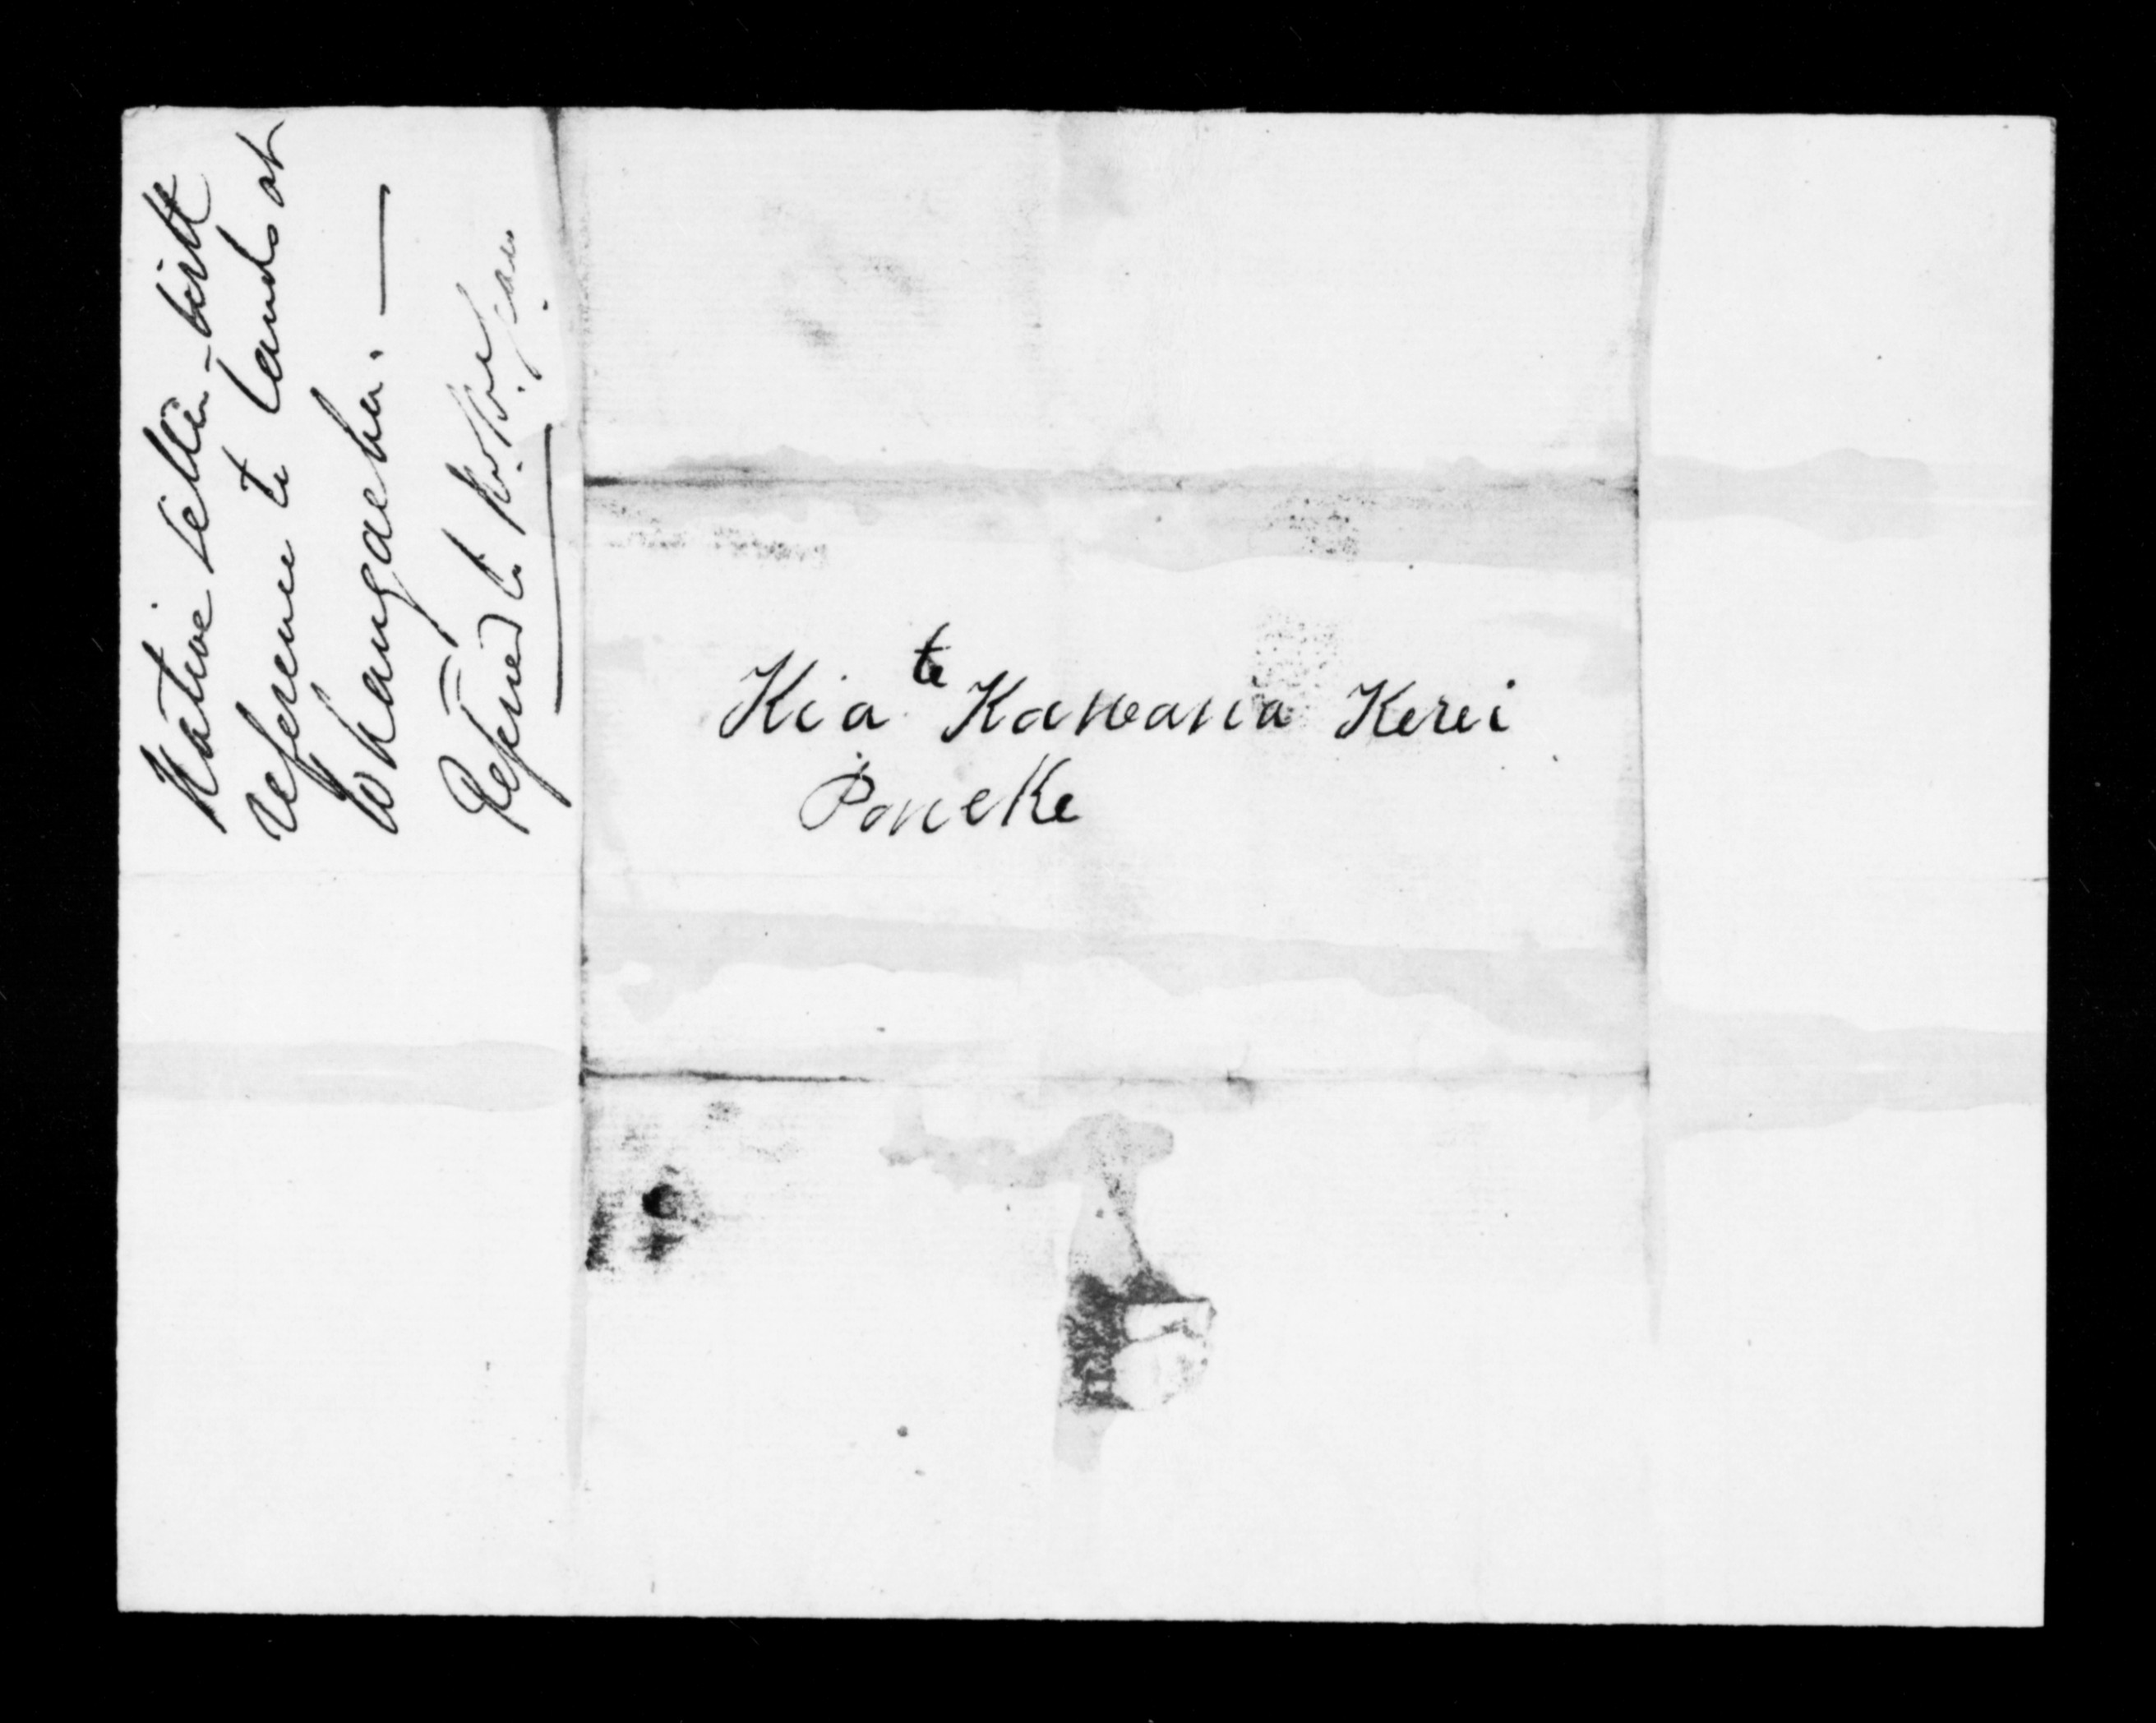 Native letter - with
reference to lands at
Whangaehu. —
Referred to
Kia te Kawana Kerei
Poneke